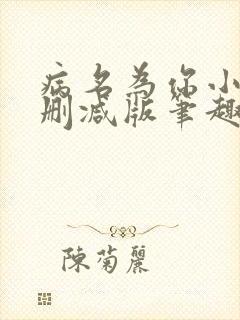 病名为你小
删减版笔趣
陳菊麗